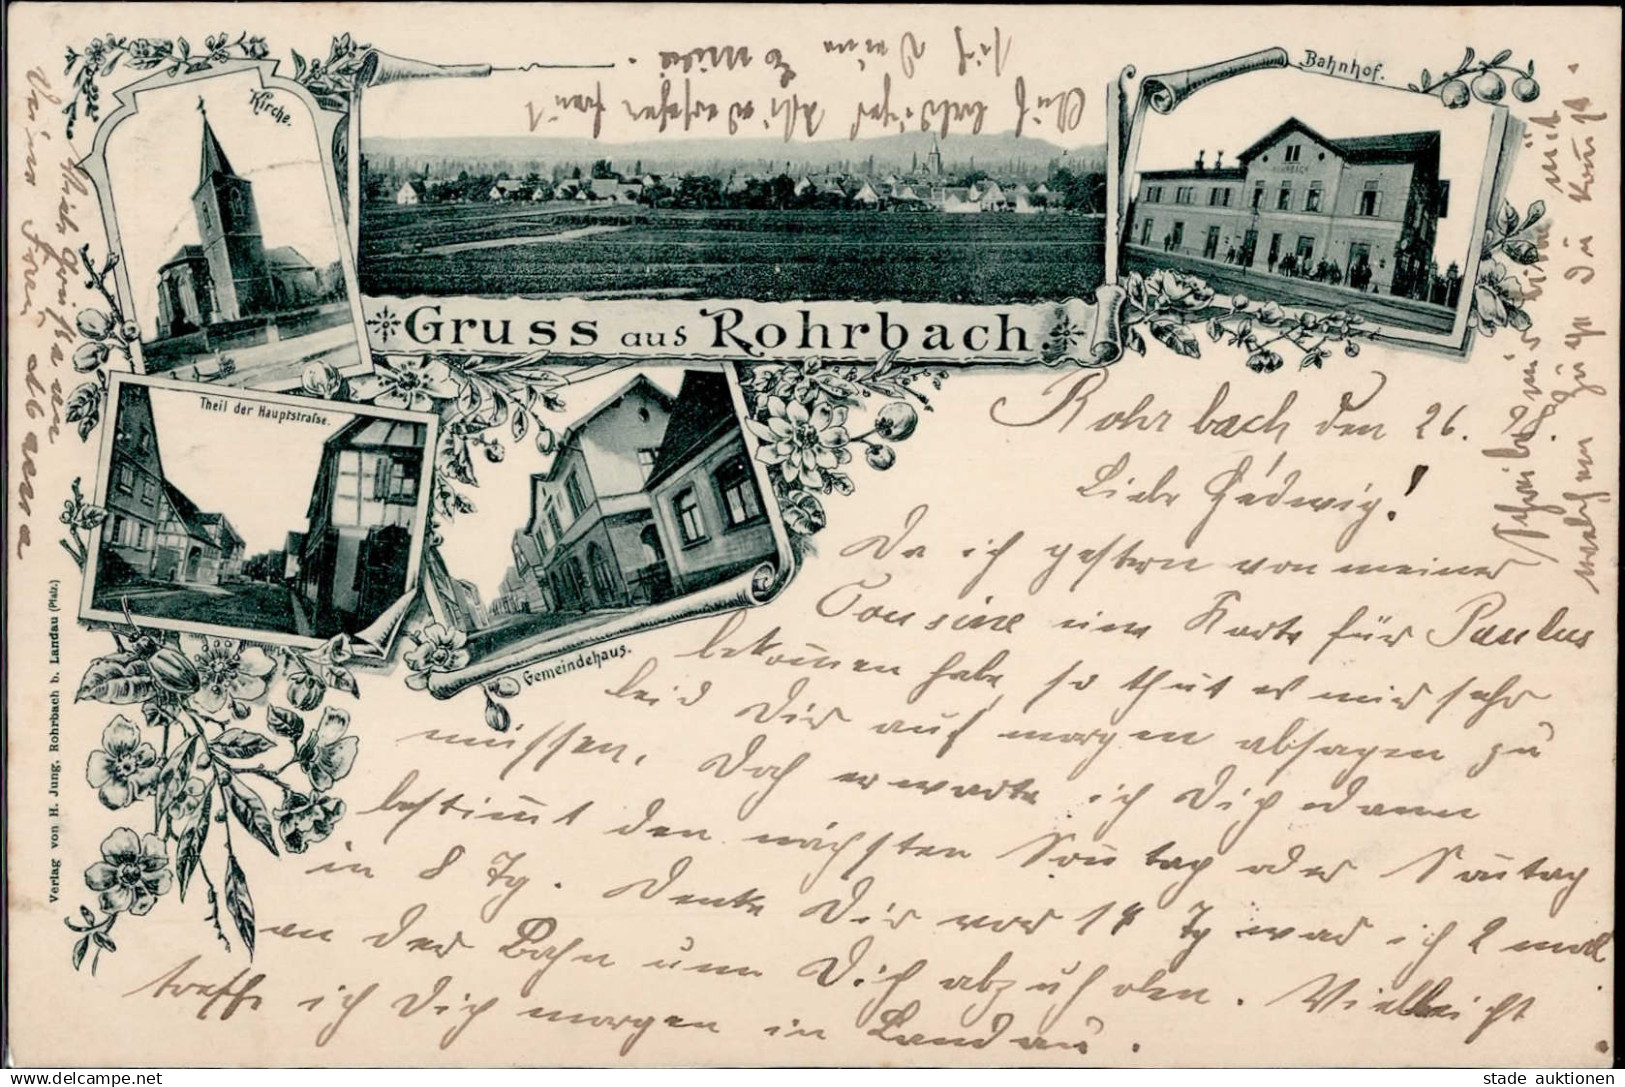 Kirche.
Bahnhof.
Gruss aus Rohrbach.
Theil der Hauptstraße.
Gemeindehaus.
Verlag von H. Jung, Rohrbach b. Landau (Pfalz.)
Rohrbach den 26. 98.
Liebe Hedwig!
Da ich gestern von meiner
Cousine eine Karte für Paulus
bekommen habe, so thut es mir sehr
leid Dir auf morgen absagen zu
müssen. Doch erwarte ich Dich dann
bestimmt den nächsten Sonntag oder Sonntag
in 8 Tg. Denke Dir vor 14 Tg war ich 2 mal
an der Bahn um Dich abzuholen. Vielleicht
treffe ich Dich morgen in Landau.
Schreibe mir bitte mit
welchem Zuge du kommst.
Auf baldiges Wiedersehen freut
sich Deine Emilie.